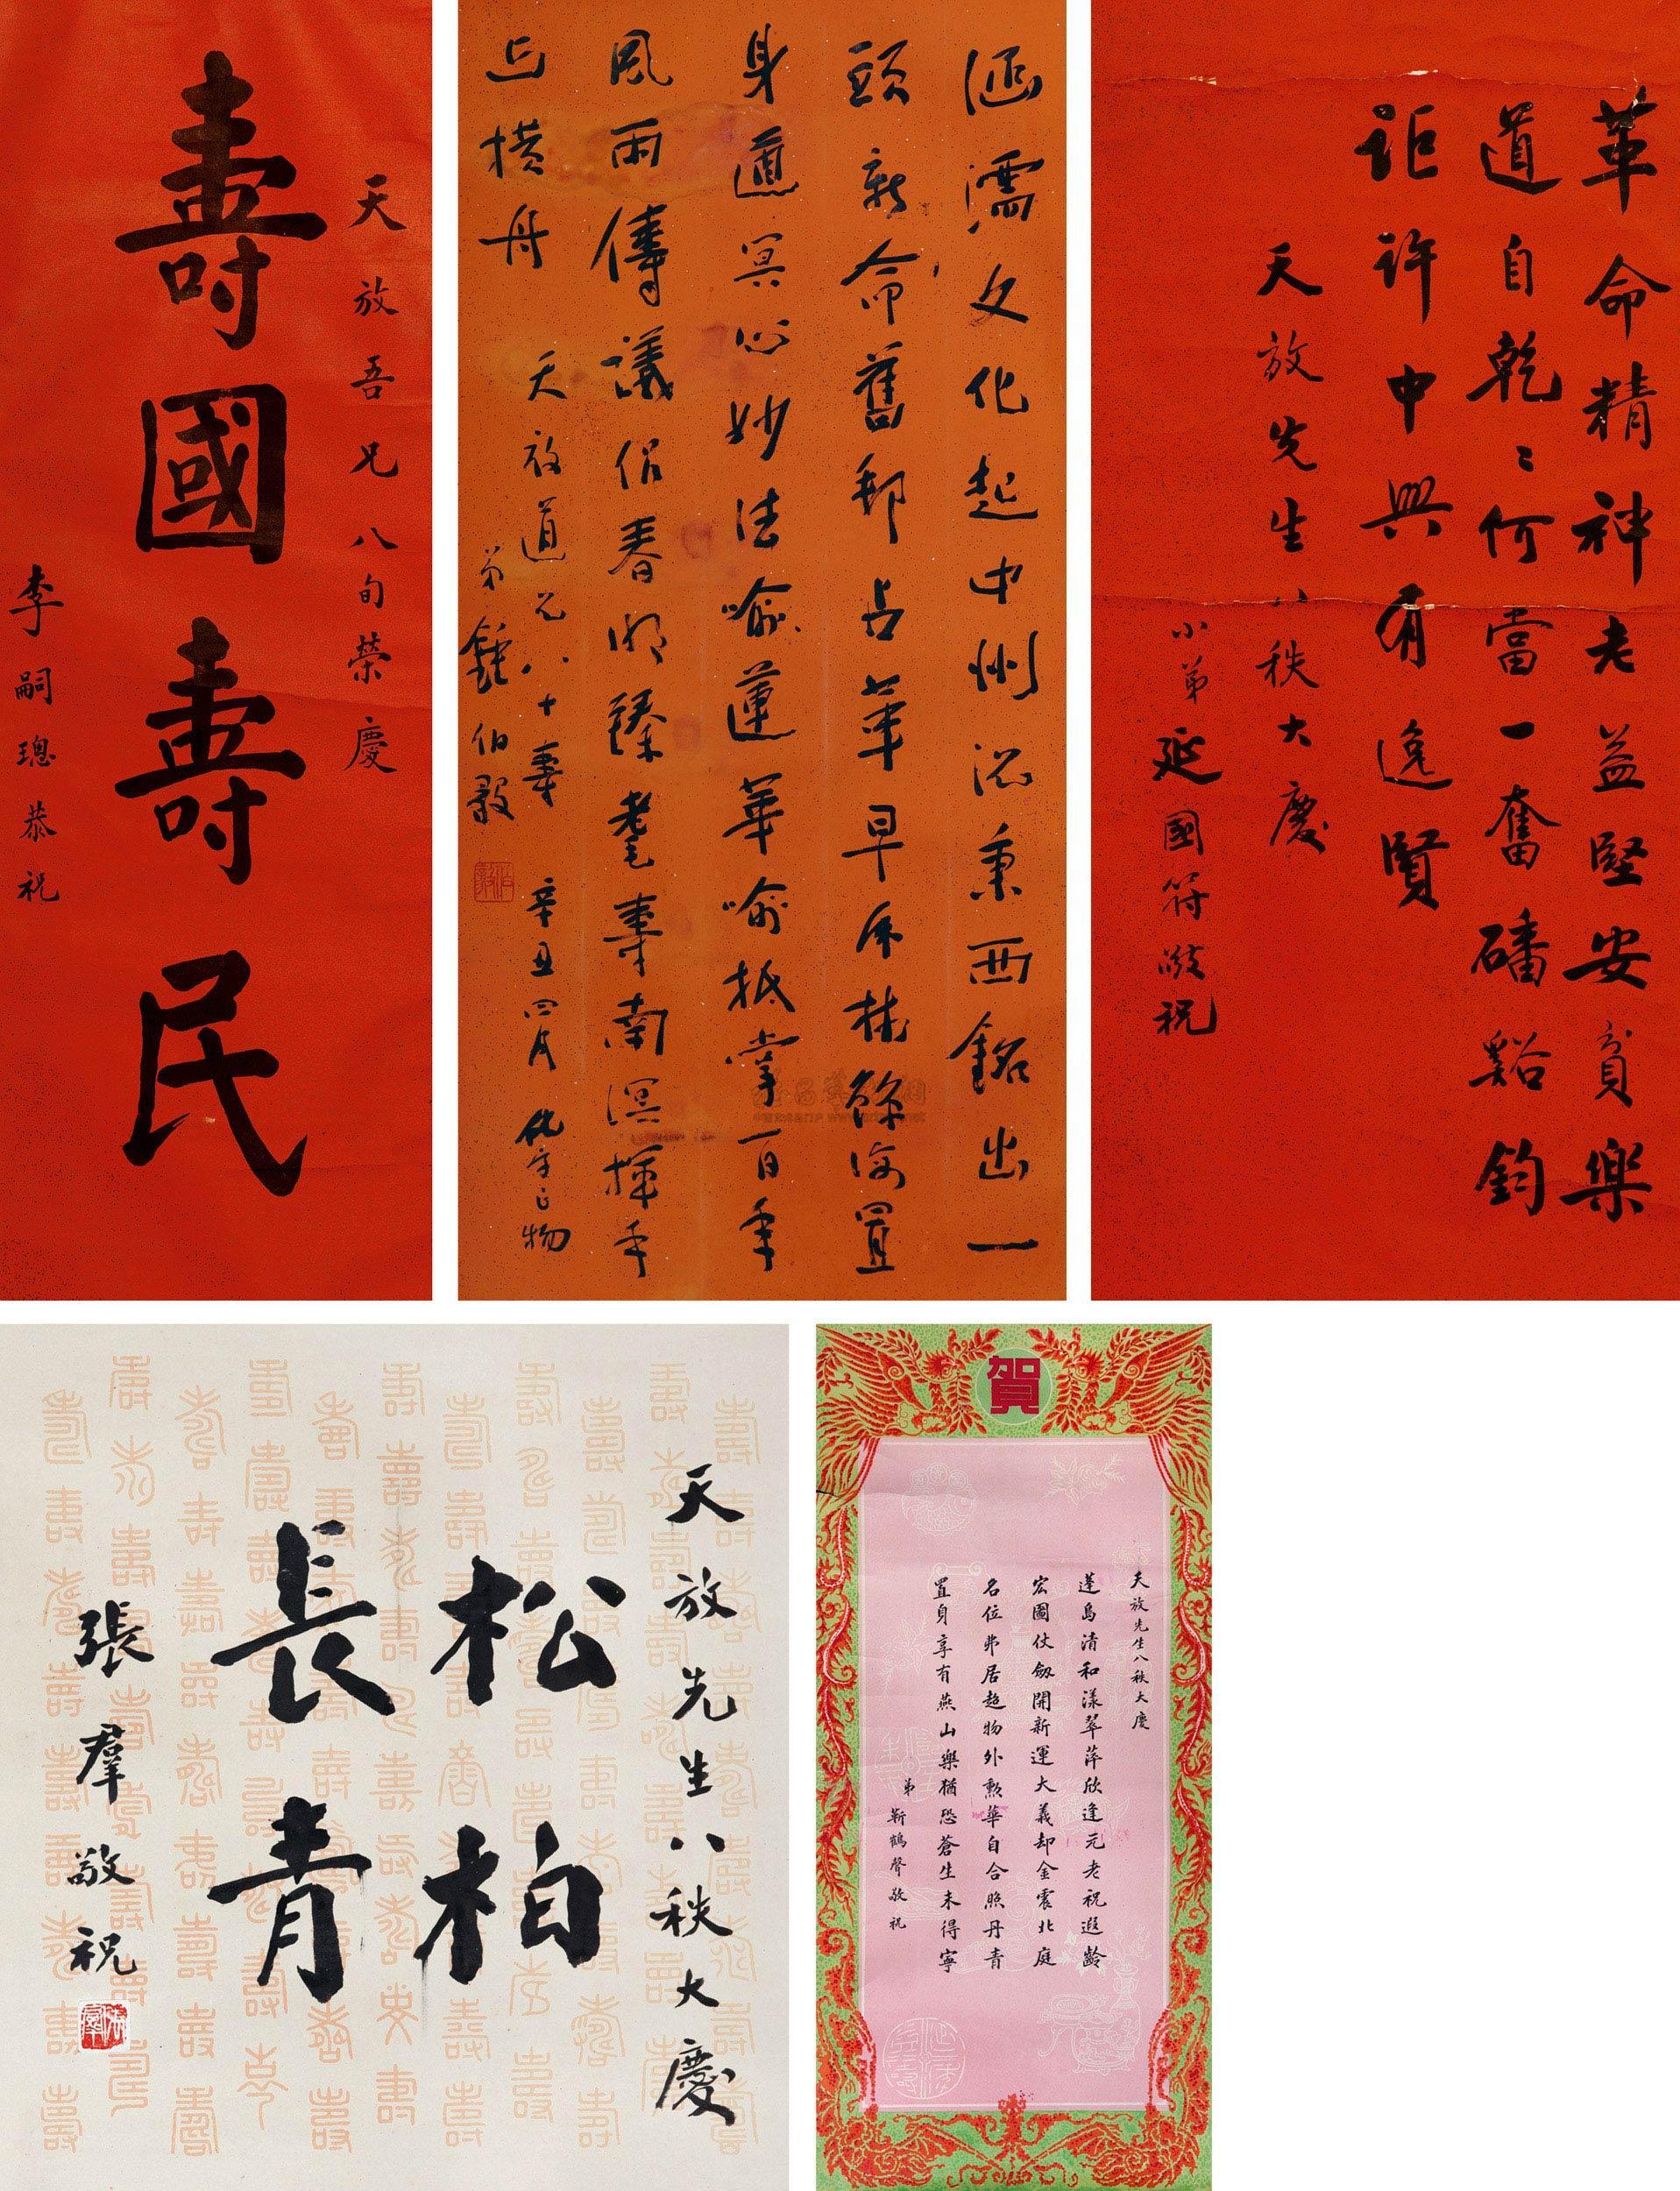 天放吾兄八旬榮慶
壽國壽民
李嗣璁恭祝
涵濡文化起中州沉秉西銘出一
頭新命舊邦占革早 餘 置
身邃冥心妙法喻蓮華喻抵掌百年
風雨儔議侶春明臻耄壽南溟揮手
上橫舟
天放道兄八十壽 辛丑四月
弟鍾伯毅
革命精神老益堅安貧樂
道自乾乾何當一奮磻谿鈞
詎許中興有逸賢
天放先生八秩大慶
小弟延國符敬祝
天放先生八秩大慶
松柏
長青
張羣敬祝
賀
天放先生八秩大慶
蓬島清和漾翠萍欣逢元老祝遐齡
宏圖仗劍開新運大義却金震北庭
名位弗居超物外勲華自合照丹青
置身享有燕山樂猶恐蒼生未得寧
弟靳鶴聲敬祝